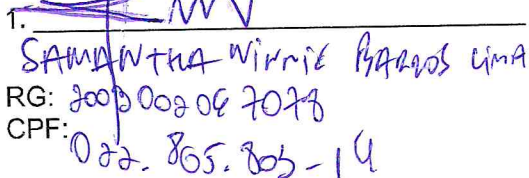 1.
SAMANTHA WINNIE BARROS LIMA
RG: 2002002067078
CPF: 022.865.803-14